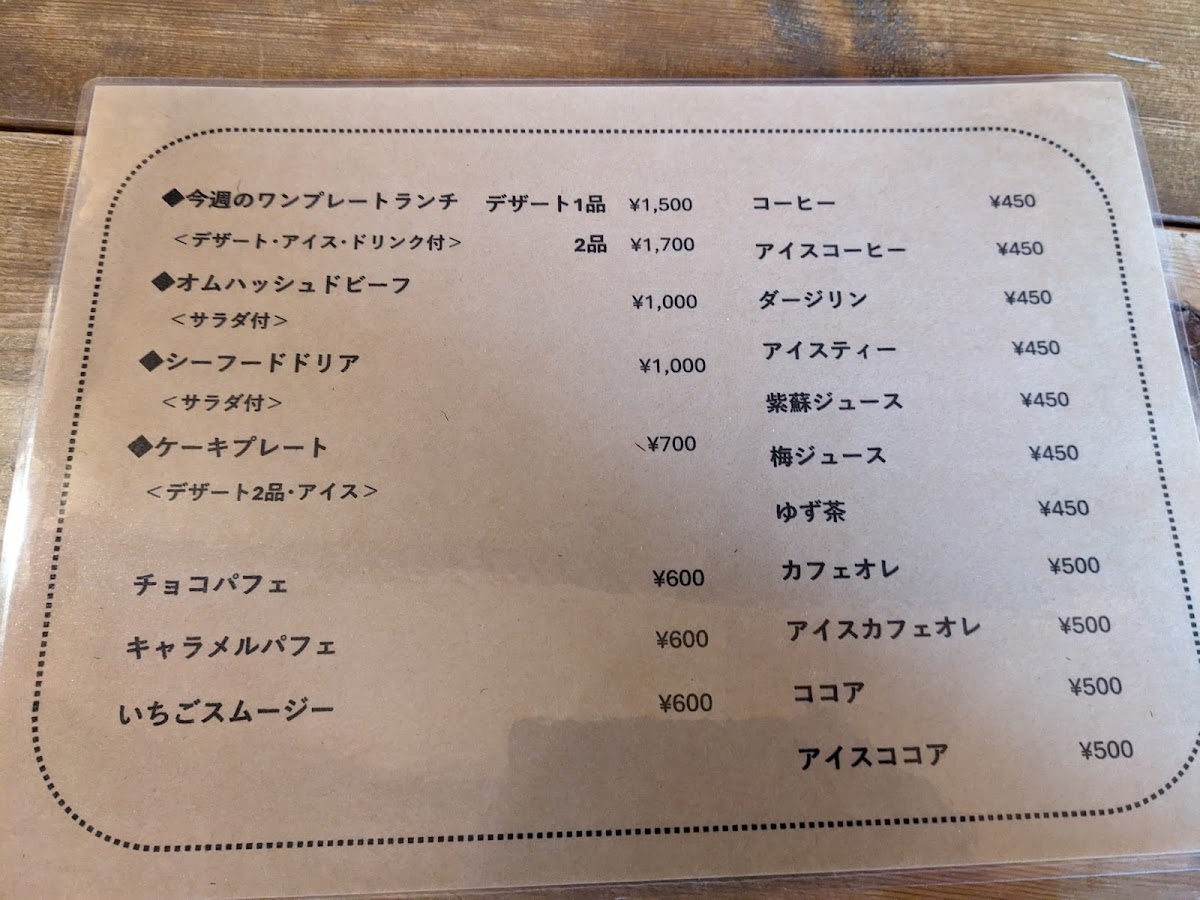 ◆今週のワンプレートランチ デザート1品 ¥1,500
<デザート・アイス・ドリンク付> 2品 ¥1,700
◆オムハッシュドビーフ ¥1,000
<サラダ付>
◆シーフードドリア ¥1,000
<サラダ付>
◆ケーキプレート ¥700
<デザート2品・アイス>
チョコパフェ ¥600
キャラメルパフェ ¥600
いちごスムージー ¥600
コーヒー ¥450
アイスコーヒー ¥450
ダージリン ¥450
アイスティー ¥450
紫蘇ジュース ¥450
梅ジュース ¥450
ゆず茶 ¥450
カフェオレ ¥500
アイスカフェオレ ¥500
ココア ¥500
アイスココア ¥500